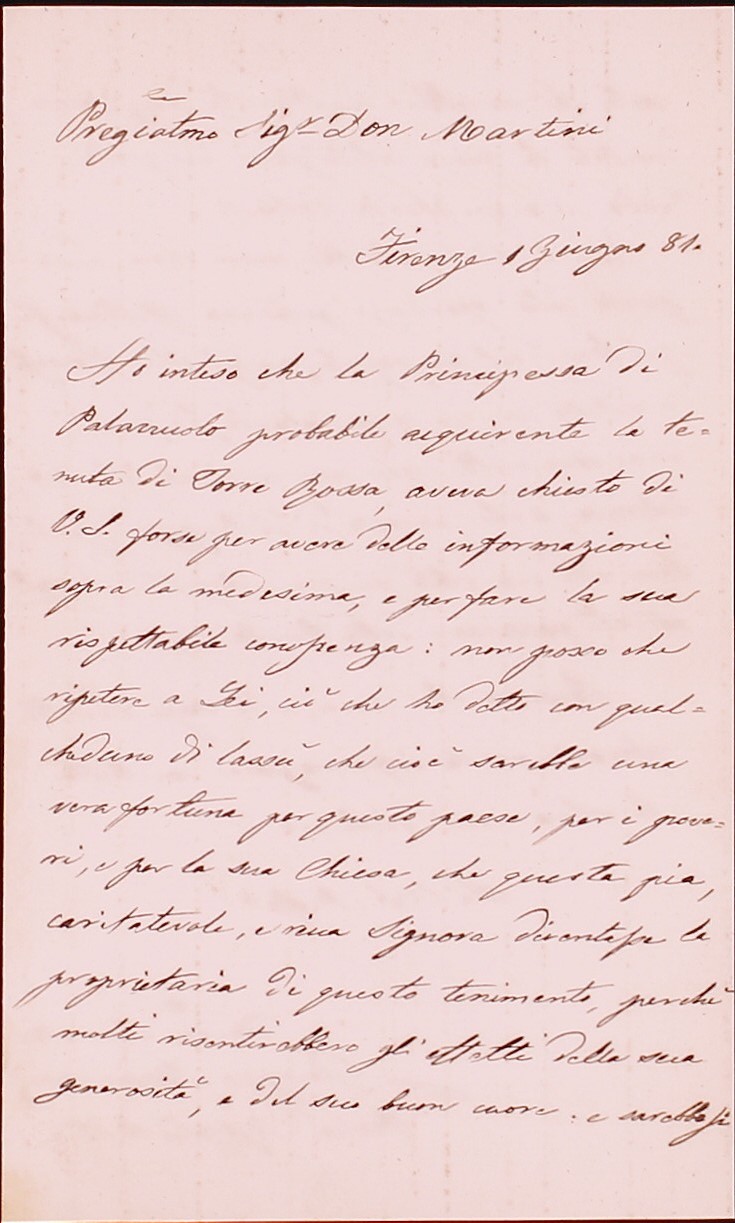 Pregiatmo Sigr Don Martini
Firenze 1 Giugno 81.
Ho inteso che la Principessa di
Palazzuolo probabile acquirente la te=
nuta di Torre Rossa, aveva chiesto di
V.S. forse per avere delle informazioni
sopra la medesima, e per fare la sua
rispettabile conoscenza: non posso che
ripetere a Lei, ciò che ho detto con qual=
cheduno di lassù, che cioè sarebbe una
vera fortuna per questo paese, per i pove=
ri, e per la sua Chiesa, che questa pia,
caritatevole, e ricca Signora diventasse la
proprietaria di questo tenimento, perchè
molti risentirebbero gli effetti della sua
generosità, e del suo buon cuore: e sarebbe